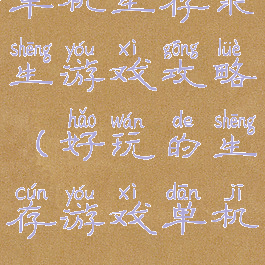 单机生存策
shēng yóu xì gōng lüè
生游戏攻略
hǎo wán de shēng
（好玩的生
cún yóu xì dān jī
存游戏单机